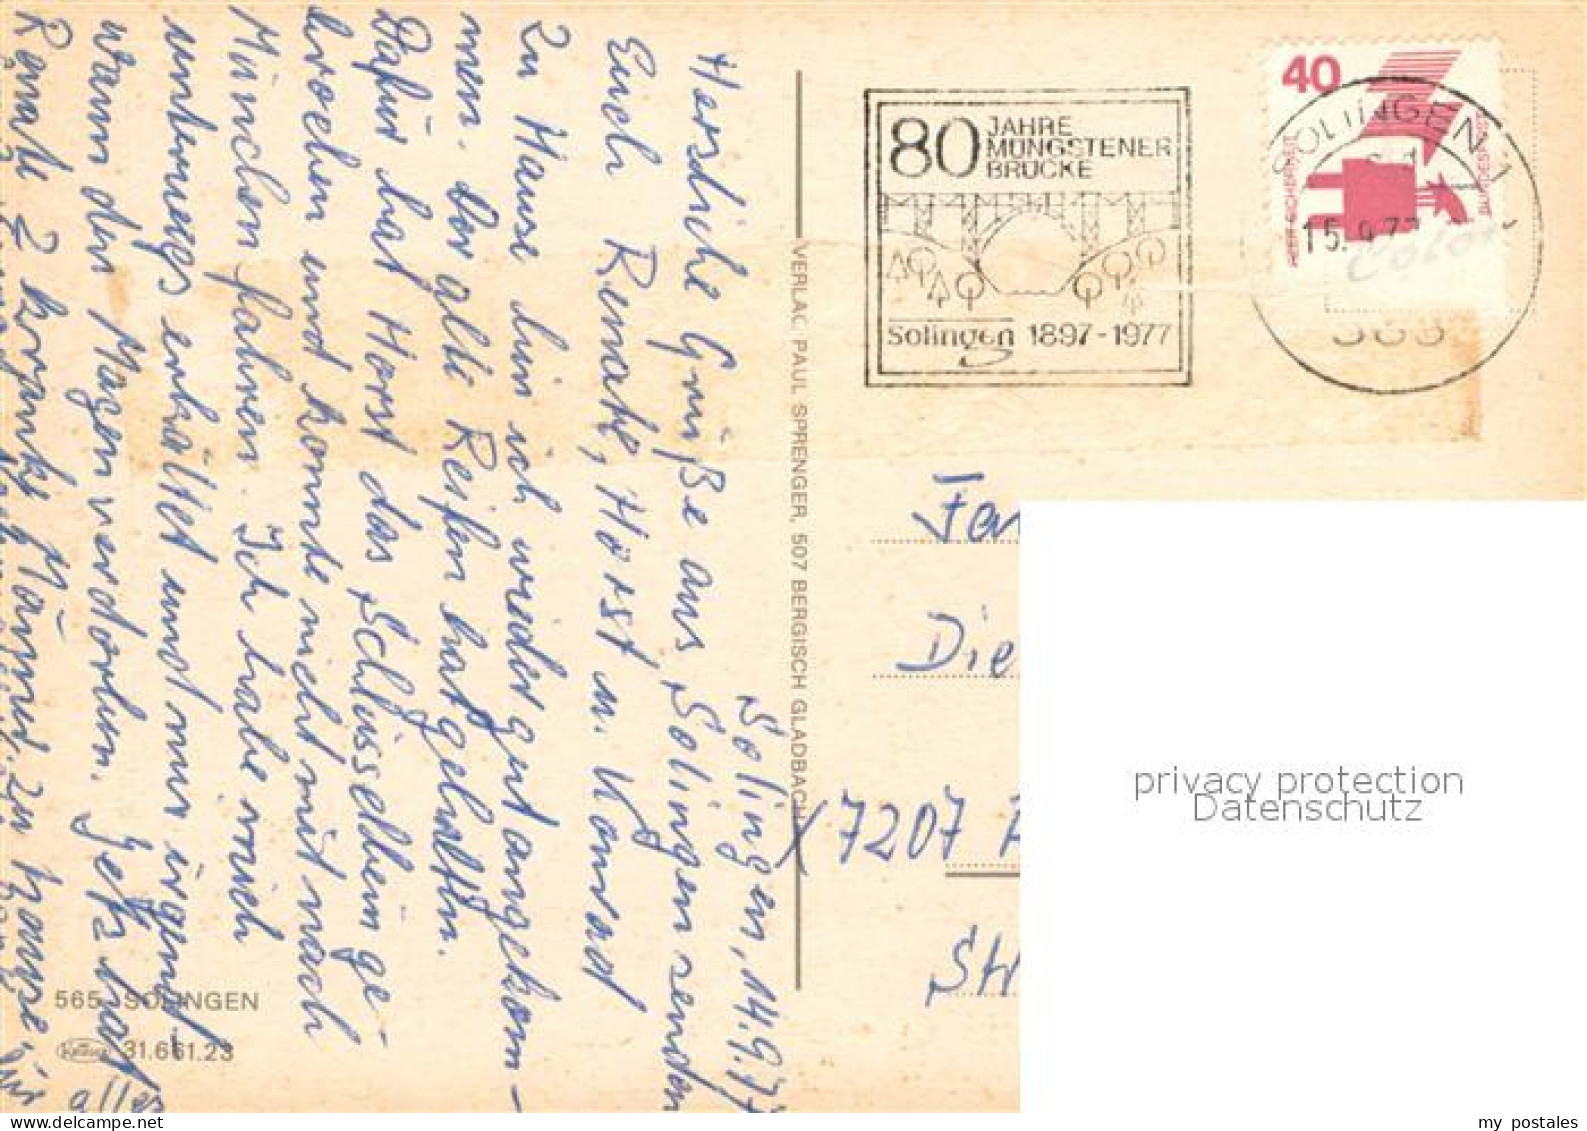 Solingen, 14.9.77
Herzliche Grüße aus Solingen senden
Euch Renate, Horst u. Konrad
Zu Hause bin ich wieder gut angekom-
men. Der alte Reifen hat gehalten.
Dafür hat Horst das Schlüsselbein ge-
brochen und konnte nicht mit nach
München fahren. Ich habe mich
unterwegs erkältet und nur irgend-
wann den Magen verdorben. Jetz hat
Renate 2 kranke Männer zu Hause,
alles
80 JAHRE
MÜNGSTENER
BRÜCKE
Solingen 1897-1977
40
JEDERZEIT SICHERHEIT
DEUTSCHE BUNDESPOST
SOLINGEN 1
15.9.77
565
VERLAG PAUL SPRENGER, 507 BERGISCH GLADBACH
Fam
Die
7207
St
565 SOLINGEN
Krüger 31.661.23
privacy protection
Datenschutz
my postales